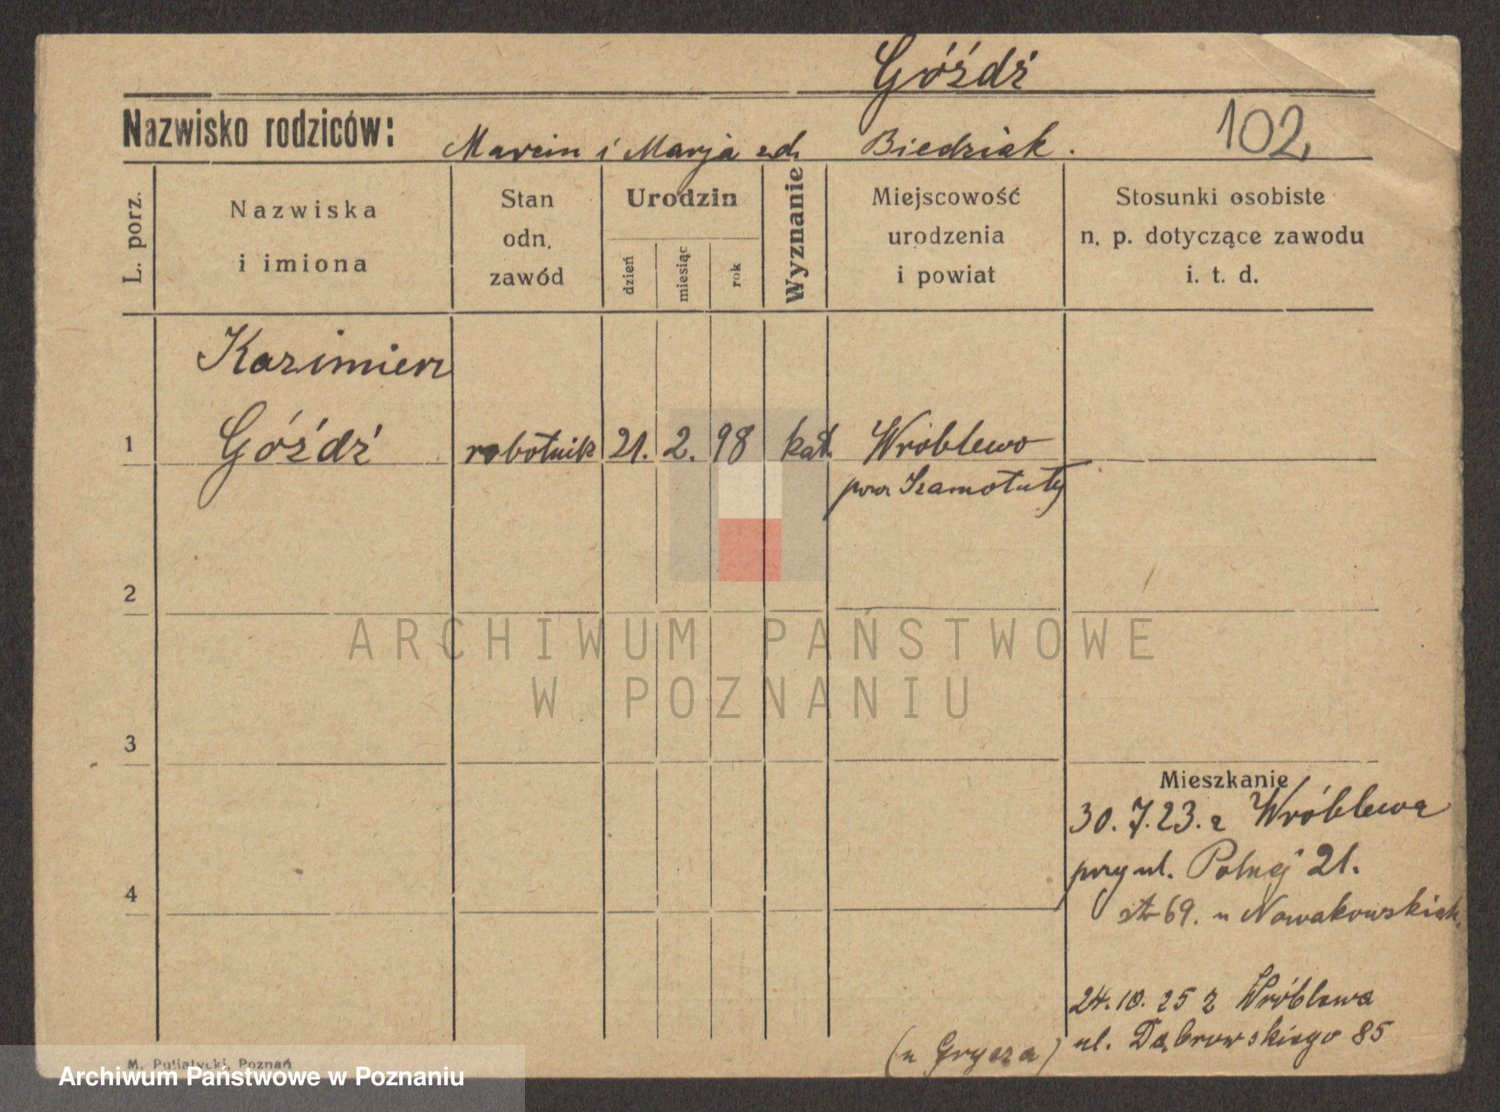 Góźdź
Nazwisko rodziców: Marcin i Marja zd. Biedziak.
102,
L. porz.
Nazwiska
i imiona
Stan
odn.
zawód
Urodzin
dzień
miesiąc
rok
Wyznanie
Miejscowość
urodzenia
i powiat
Stosunki osobiste
n. p. dotyczące zawodu
i. t. d.
Kazimierz
1 Góźdź robotnik 21. 2. 98 kat. Wróblewo
pow Szamotuły
2
ARCHIWUM PAŃSTWOWE
W POZNANIU
3
Mieszkanie
30. 7. 23. z Wróblewa
przy ul. Polnej 21.
4
69. u Nowakowskich.
24. 10. 25 z Wróblewa
ul. Dąbrowskiego 85
(u Grysza)
M. Putiatycki, Poznań
Archiwum Państwowe w Poznaniu